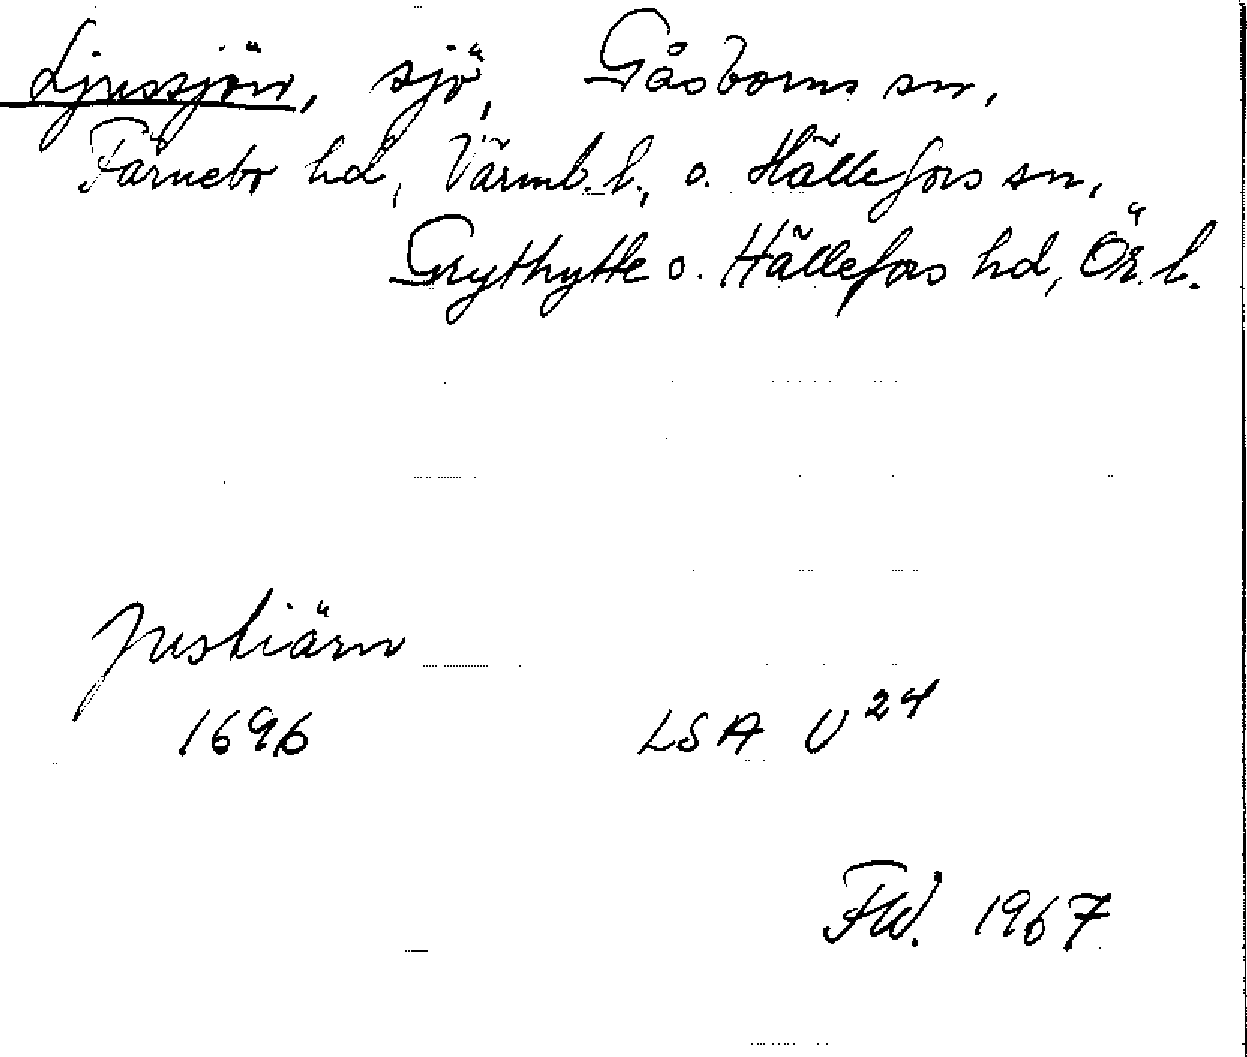 Ljussjön, sjö, Gåsborns sn,
Färnebo hd, Värml. l., o. Hällefors sn,
Grythytte o. Hällefors hd, Ör. l.
Justiärn
1696 LSA U 24
FW. 1967